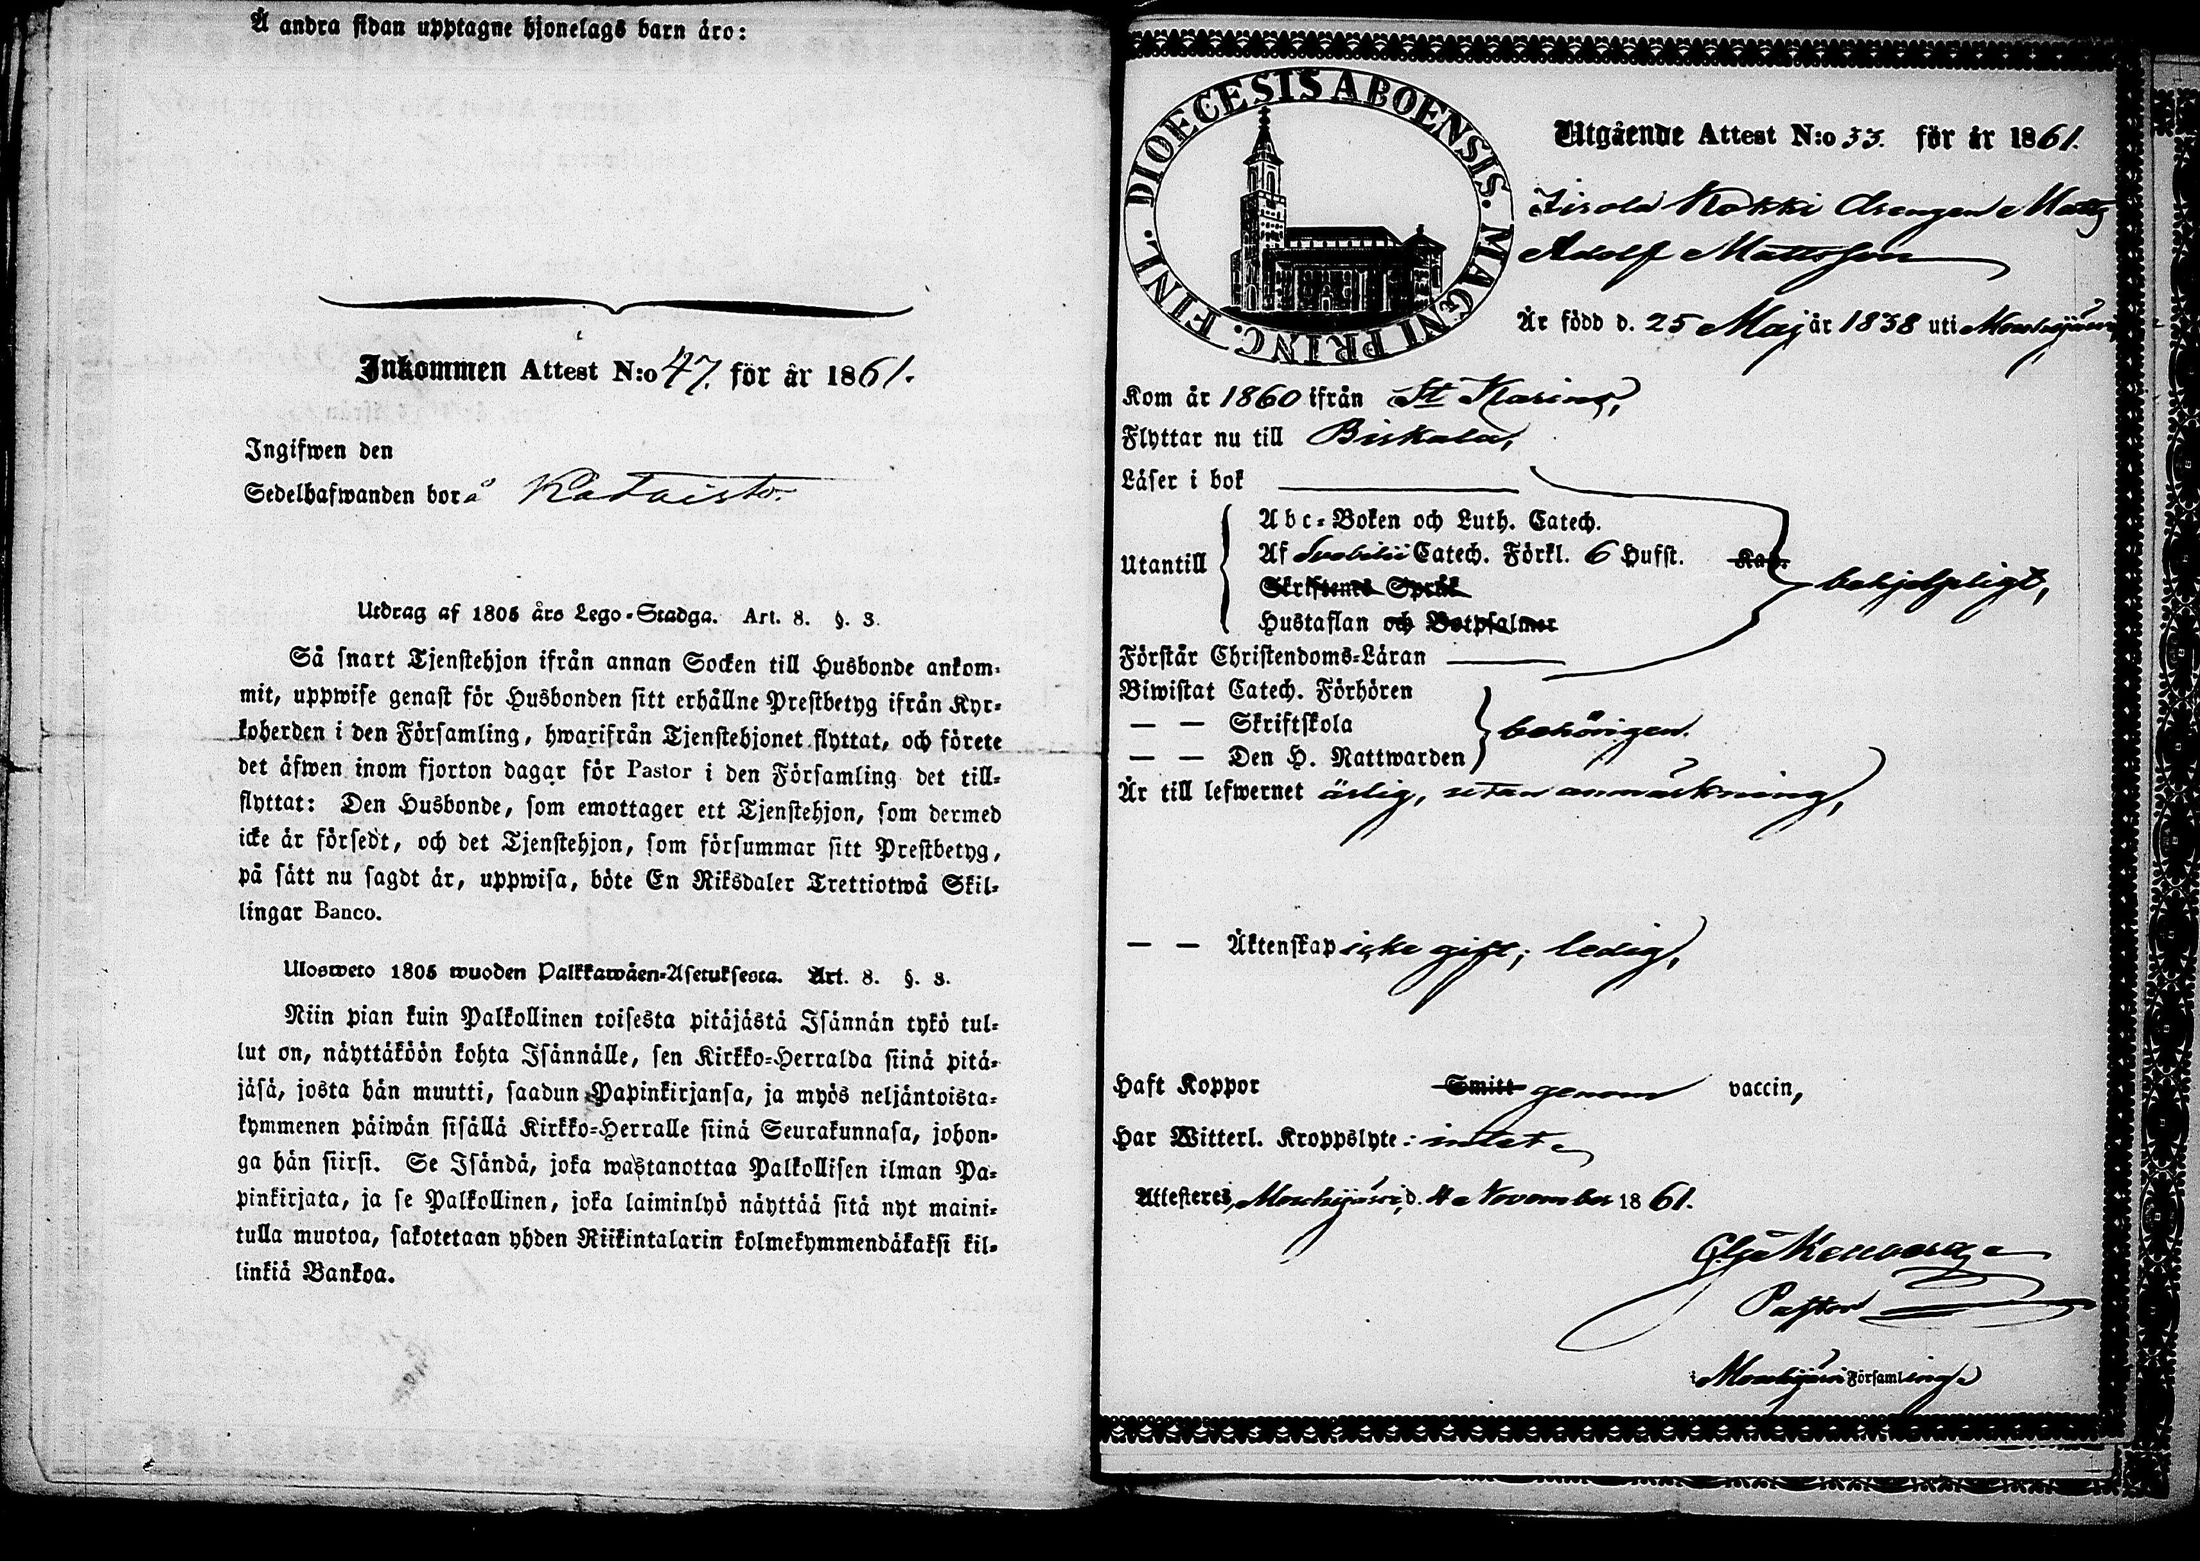 Å andra sidan upptagne hjonelags barn äro:
Inkommen Attest N:o 47. för år 1861.
Ingifwen den
Sedelhafwanden bor å Kataisto
Utdrag af 1805 års Lego-Stadga. Art. 8. §. 3.
Så snart Tjenstehjon ifrån annan Socken till Husbonde ankom-
mit, uppwise genast för Husbonden sitt erhållne Prestbetyg ifrån Kyr-
koherden i den Församling, hwarifrån Tjenstehjonet flyttat, och förete
det äfwen inom fjorton dagar för Pastor i den Församling det till-
flyttat: Den Husbonde, som emottager ett Tjenstehjon, som dermed
icke är försedt, och det Tjenstehjon, som försummar sitt Prestbetyg,
på sätt nu sagdt är, uppwisa, böte En Riksdaler Trettiotwå Skil-
lingar Banco.
Ulosweto 1805 wuoden Palkkawäen-Asetuksesta. Art. 8. §. 3.
Niin pian kuin Palkollinen toisesta pitäjästä Isännän tykö tul-
lut on, näyttäköön kohta Isännälle, sen Kirkko-Herralda siinä pitä-
jäsä, josta hän muutti, saadun Papinkirjansa, ja myös neljäntoista-
kymmenen päiwän sisällä Kirkko-Herralle siinä Seurakunnasa, johon-
ga hän siirsi. Se Isändä, joka wastanottaa Palkollisen ilman Pa-
pinkirjata, ja se Palkollinen, joka laiminlyö näyttää sitä nyt maini-
tulla muotoa, sakotetaan yhden Riikintalarin kolmekymmendäkaksi kil-
linkiä Bankoa.
DIOECESIS ABOENSIS. MAGNI PRINC. FINL.
Utgående Attest N:o 33. för år 1861.
Kokki drengen Matts
Adolf Mattsson
Är född d. 25 Maj år 1838 uti Mouhijärvi
Kom år 1860 ifrån St Karins,
Flyttar nu till Birkala,
Läser i bok
Utantill
Abc-Boken och Luth. Catech.
Af Svebilii Catech. Förkl. 6 Hufst. Kap.
Skriftenes Språk
Hustaflan och Botpsalmer
behjelpligt,
Förstår Christendoms-Läran
Biwistat Catech. Förhören
— — Skriftskola
— — Den H. Nattwarden
behörigen.
Är till lefwernet ärlig, utan anmärkning,
— — Äktenskap icke gift; ledig,
Haft Koppor Smitt genom vaccin,
Har Witterl. Kroppslyte: intet
Attesteres, Mouhijärvi, d. 4 November 1861.
Pastor
i Mouhijärvi Församling